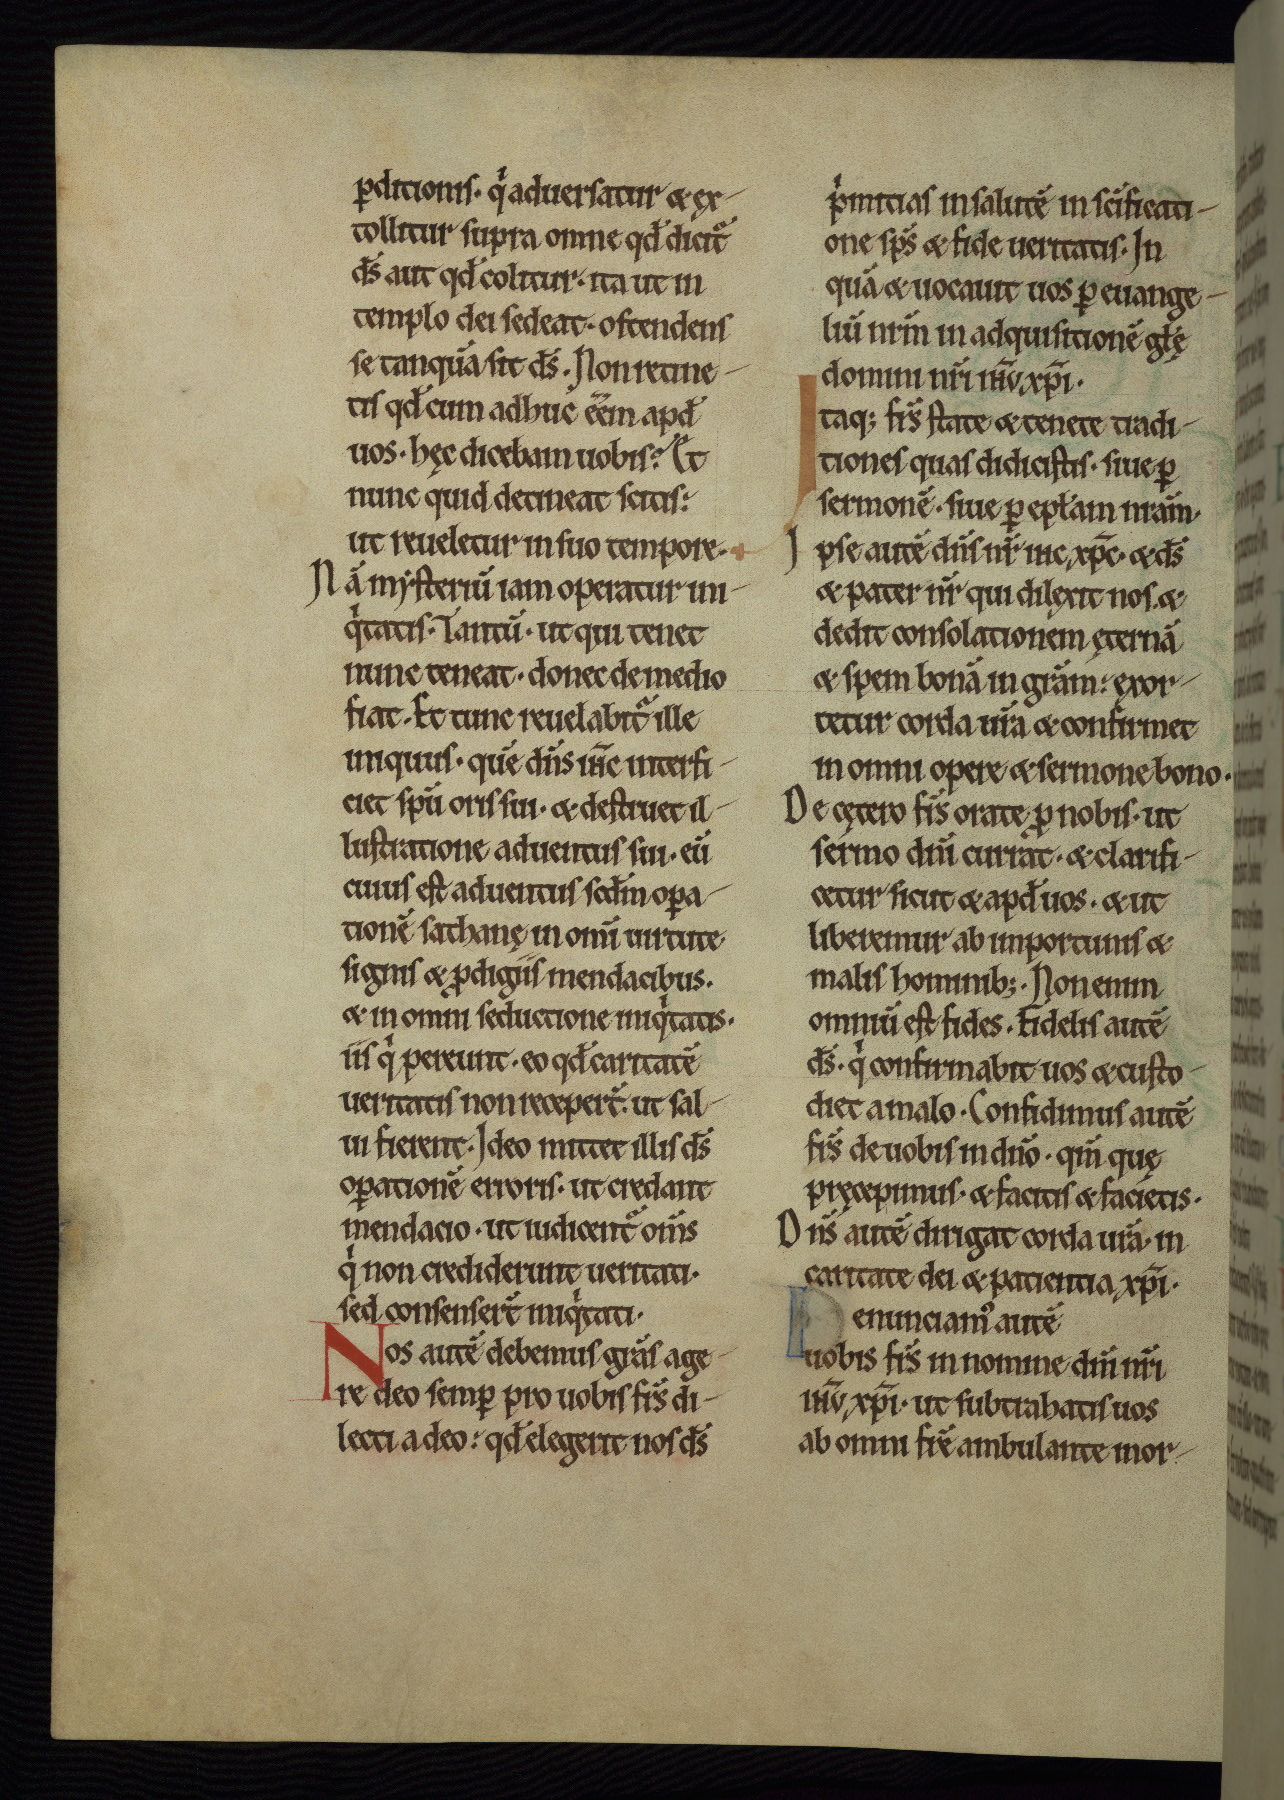 p̱ditionis· qͥ aduersatur & ex-
tollitur supra omne qđ dicit᷑
dš aut qđ colitur· ita ut in
templo dei sedeat· ostendens
se tanquā sit dš. Non retine-
tis qđ cum adhuc eēm apđ
uos· hęc dicebam uobis? Et
nunc quid detineat scitis?
ut reueletur in suo tempore.
Nā mysteriū iam operatur ini-
qͥtatis. Tantū· ut qui tenet
nunc teneat· donec de medio
fiat. Et tunc reuelabit᷑ ille
iniquus· quē dn̄s ih̄c interfi-
ciet spū oris sui· & destruet il-
lustratione aduentus sui· eū
cuius est aduentus scd̄m oꝑa-
tionē sathanę in om̄i uirtute
signis & ꝓdigiis mendacibus.
& in omni seductione iniqͥtatis·
iis qͥ pereunt· eo qđ caritatē
ueritatis non receper̄t· ut sal-
ui fierent. Ideo mittet illis dš
oꝑationē erroris· ut credant
mendacio· ut iudicent᷑ om̄s
qͥ non crediderunt ueritati·
sed consenser̄t iniqͥtati·
Nos autē debemus gr̄as age-
re deo semꝑ pro uobis fr̄s di-
lecti a deo: qđ elegerit nos dš
pͥmitias in salutē in sc̄ificati-
one sp̄s & fide ueritatis. In
quā & uocauit uos ꝑ euange-
liū nr̄m in adquisitionē gł̄ę
domini nr̄i ih̄u xp̄i.
Itaq; fr̄s state & tenete tradi-
tiones quas didicistis· siue ꝑ
sermonē· siue ꝑ epł̄am nr̄am.
Ipse autē dn̄s nr̄ ih̄c xp̄c· & dš
& pater nr̄ qui dilexit nos &
dedit consolationem ęternā
& spem bonā in gr̄am: exor-
tetur corda ur̄a & confirmet
in omni opere & sermone bono.
De cętero fr̄s orate ꝓ nobis· ut
sermo dn̄i currat· & clarifi-
cetur sicut & apđ uos· & ut
liberemur ab inportunis &
malis hominib;. Non enim
omniū est fides. Fidelis autē
dš· qͥ confirmabit uos & custo-
diet a malo. Confidimus autē
fr̄s de uobis in dn̄o· qm̄ quę
pręcepimus· & facitis & facietis.
Dn̄s autē dirigat corda ur̄a· in
caritate dei & patientia xp̄i.
Denunciamꝰ autē
uobis fr̄s in nomine dn̄i nr̄i
ih̄u xp̄i· ut subtrahatis uos
ab omni fr̄e ambulante inor-